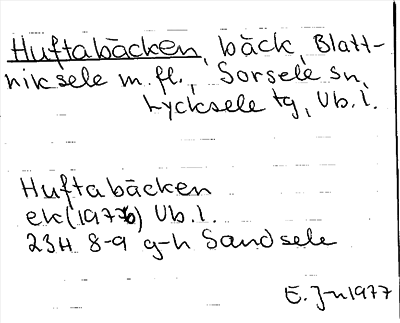 Huftabäcken, bäck, Blatt-
niksele m.fl., Sorsele sn,
Lycksele tg, Vb.l.
Huftabäcken
ek(1977b) Vb.l.
23H 8-9 g-h Sandsele
E. Jn 1977